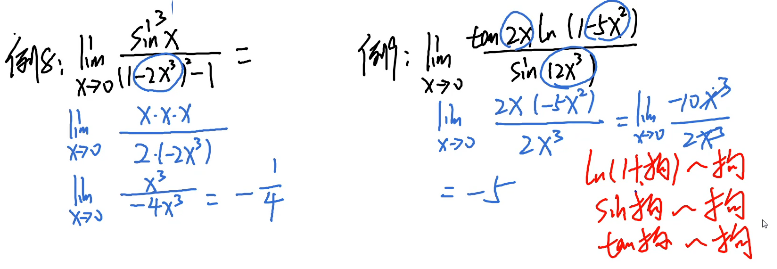 例8: lim x→0 sin³x / ((1-2x³)²-1) =
lim x→0 x·x·x / 2·(-2x³)
lim x→0 x³ / -4x³ = -1/4
例9: lim x→0 tan2x ln(1-5x²) / sin(2x³)
lim x→0 2x(-5x²) / 2x³ = lim x→0 -10x³ / 2x³
= -5
ln(1+狗) ~ 狗
sin狗 ~ 狗
tan狗 ~ 狗